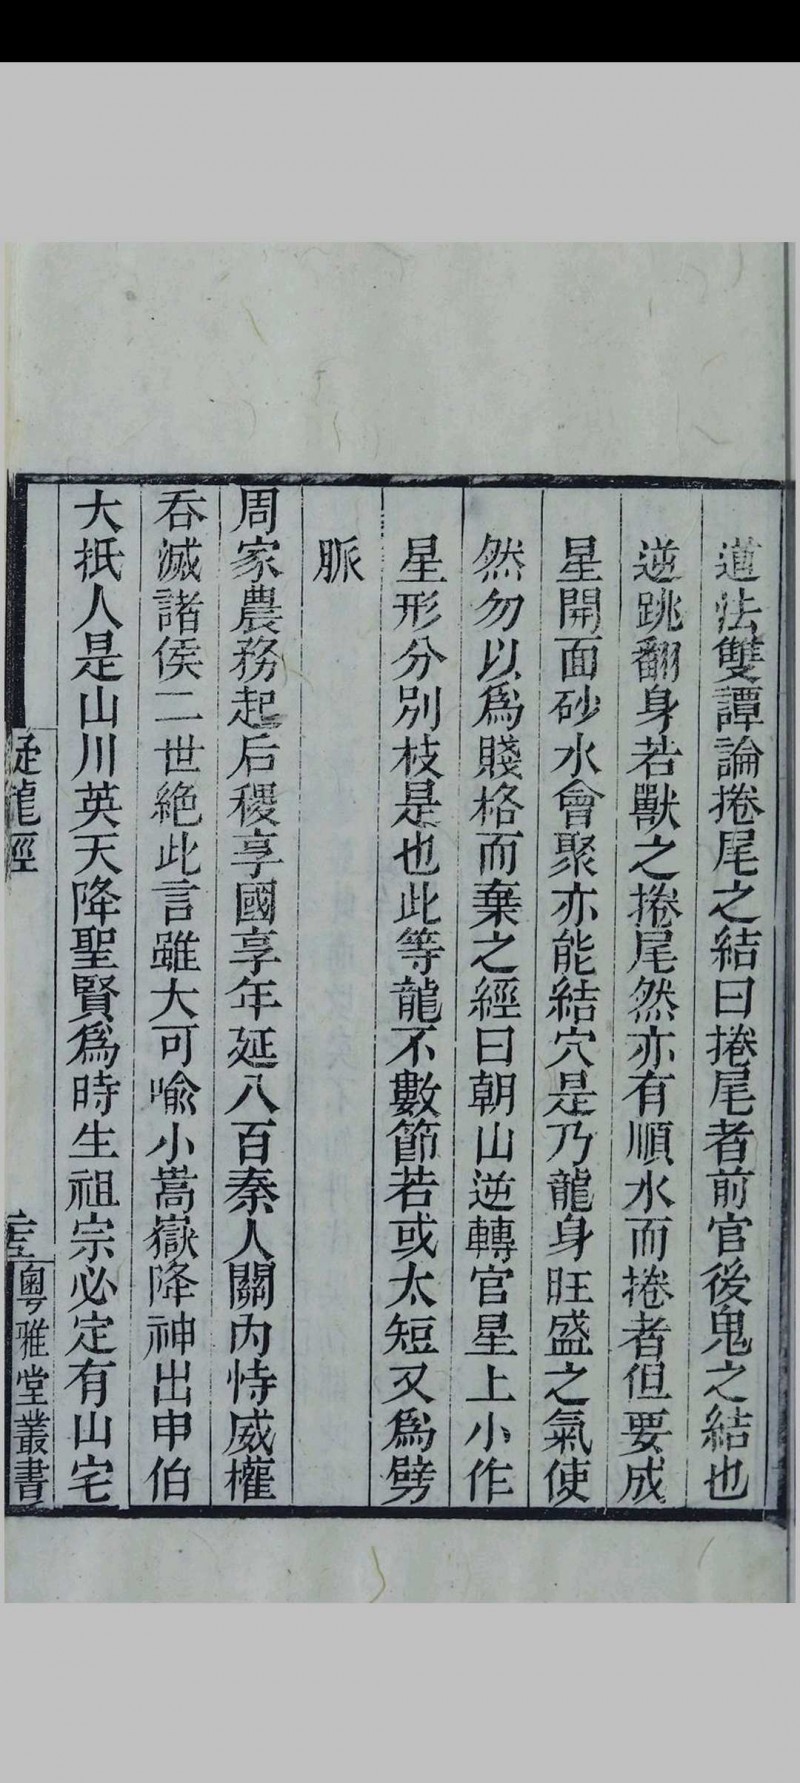 道法雙譚論捲尾之結曰捲尾者前官後鬼之結也
逆跳翻身若獸之捲尾然亦有順水而捲者但要成
星開面砂水會聚亦能結穴是乃龍身旺盛之氣使
然勿以爲賤格而棄之經曰朝山逆轉官星上小作
星形分別枝是也此等龍不數節若或太短又爲劈
脈
周家農務起后稷享國享年延八百秦人關內恃威權
吞滅諸侯二世絶此言雖大可喻小嵩嶽降神出申伯
大抵人是山川英天降聖賢爲時生祖宗必定有山宅
疑龍經
粵雅堂叢書